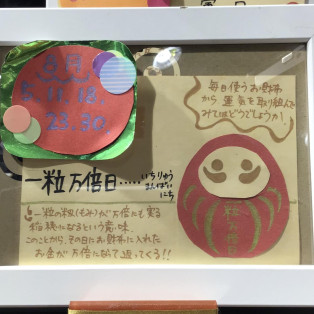 8月
5.11.18.
23.30.
毎日使うお財布
から 運気を取り組んで
みてはどうでしょうか!
一粒万倍日.....いちりゅう
まんばい
にち
一粒の籾(もみ)が万倍にも実る
稲穂になるという意味。
このことから、その日にお財布に入れた
お金が万倍になって返ってくる!!
一粒万倍日